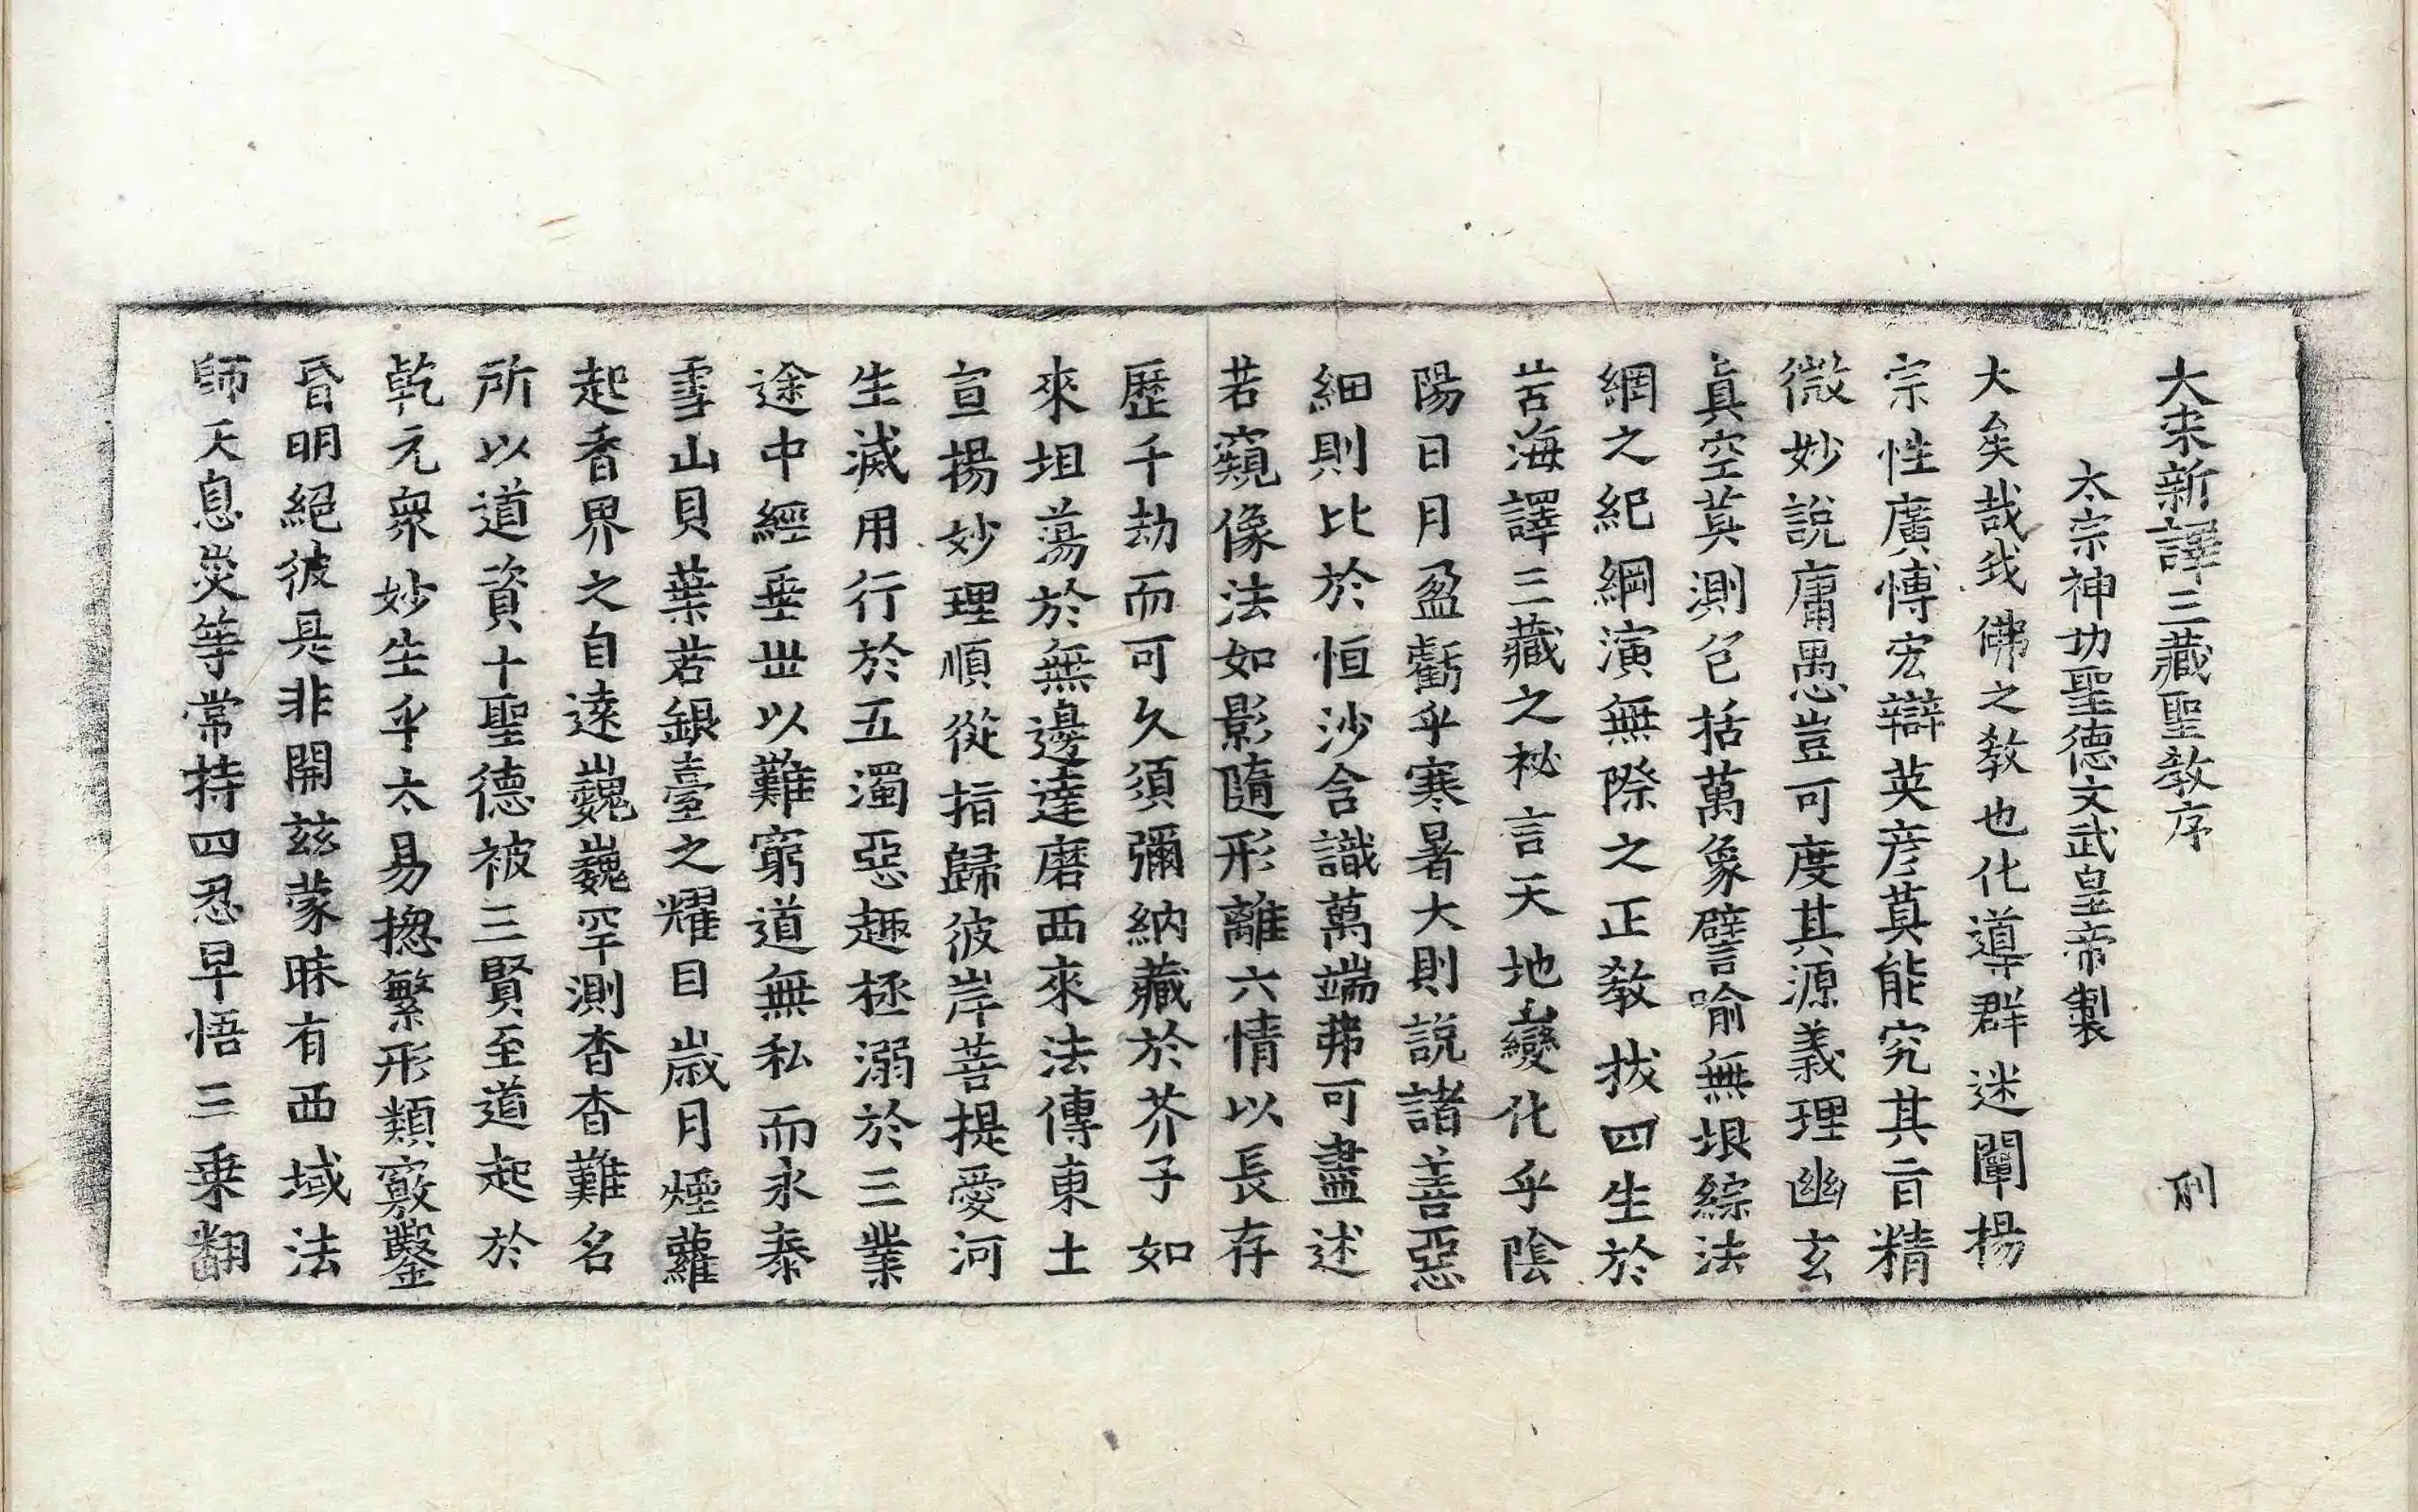 大宋新譯三藏聖教序
太宗神功聖德文武皇帝製
大矣哉我佛之教也化導群迷闡揚
宗性廣博宏辯英彦莫能究其旨精
微妙說庸愚豈可度其源義理幽玄
真空莫測包括萬象譬喻無垠綜法
網之紀綱演無際之正教拔四生於
苦海譯三藏之祕言天地變化乎陰
陽日月盈虧乎寒暑大則說諸善惡
細則比於恒沙含識萬端弗可盡述
若窺像法如影隨形離六情以長存
歷千劫而可久須彌納藏於芥子如
來坦蕩於無邊達磨西來法傳東土
宣揚妙理順從指歸彼岸菩提愛河
生滅用行於五濁惡趣拯溺於三業
途中經垂世以難窮道無私而永泰
雪山貝葉若銀臺之耀目歲月煙蘿
起香界之自遠巍巍罕測杳杳難名
所以道資十聖德被三賢至道起於
乾元衆妙生乎太易揔繁形類竅鑿
昏明絕彼是非開兹蒙昧有西域法
師天息災等常持四忍早悟三乘翻